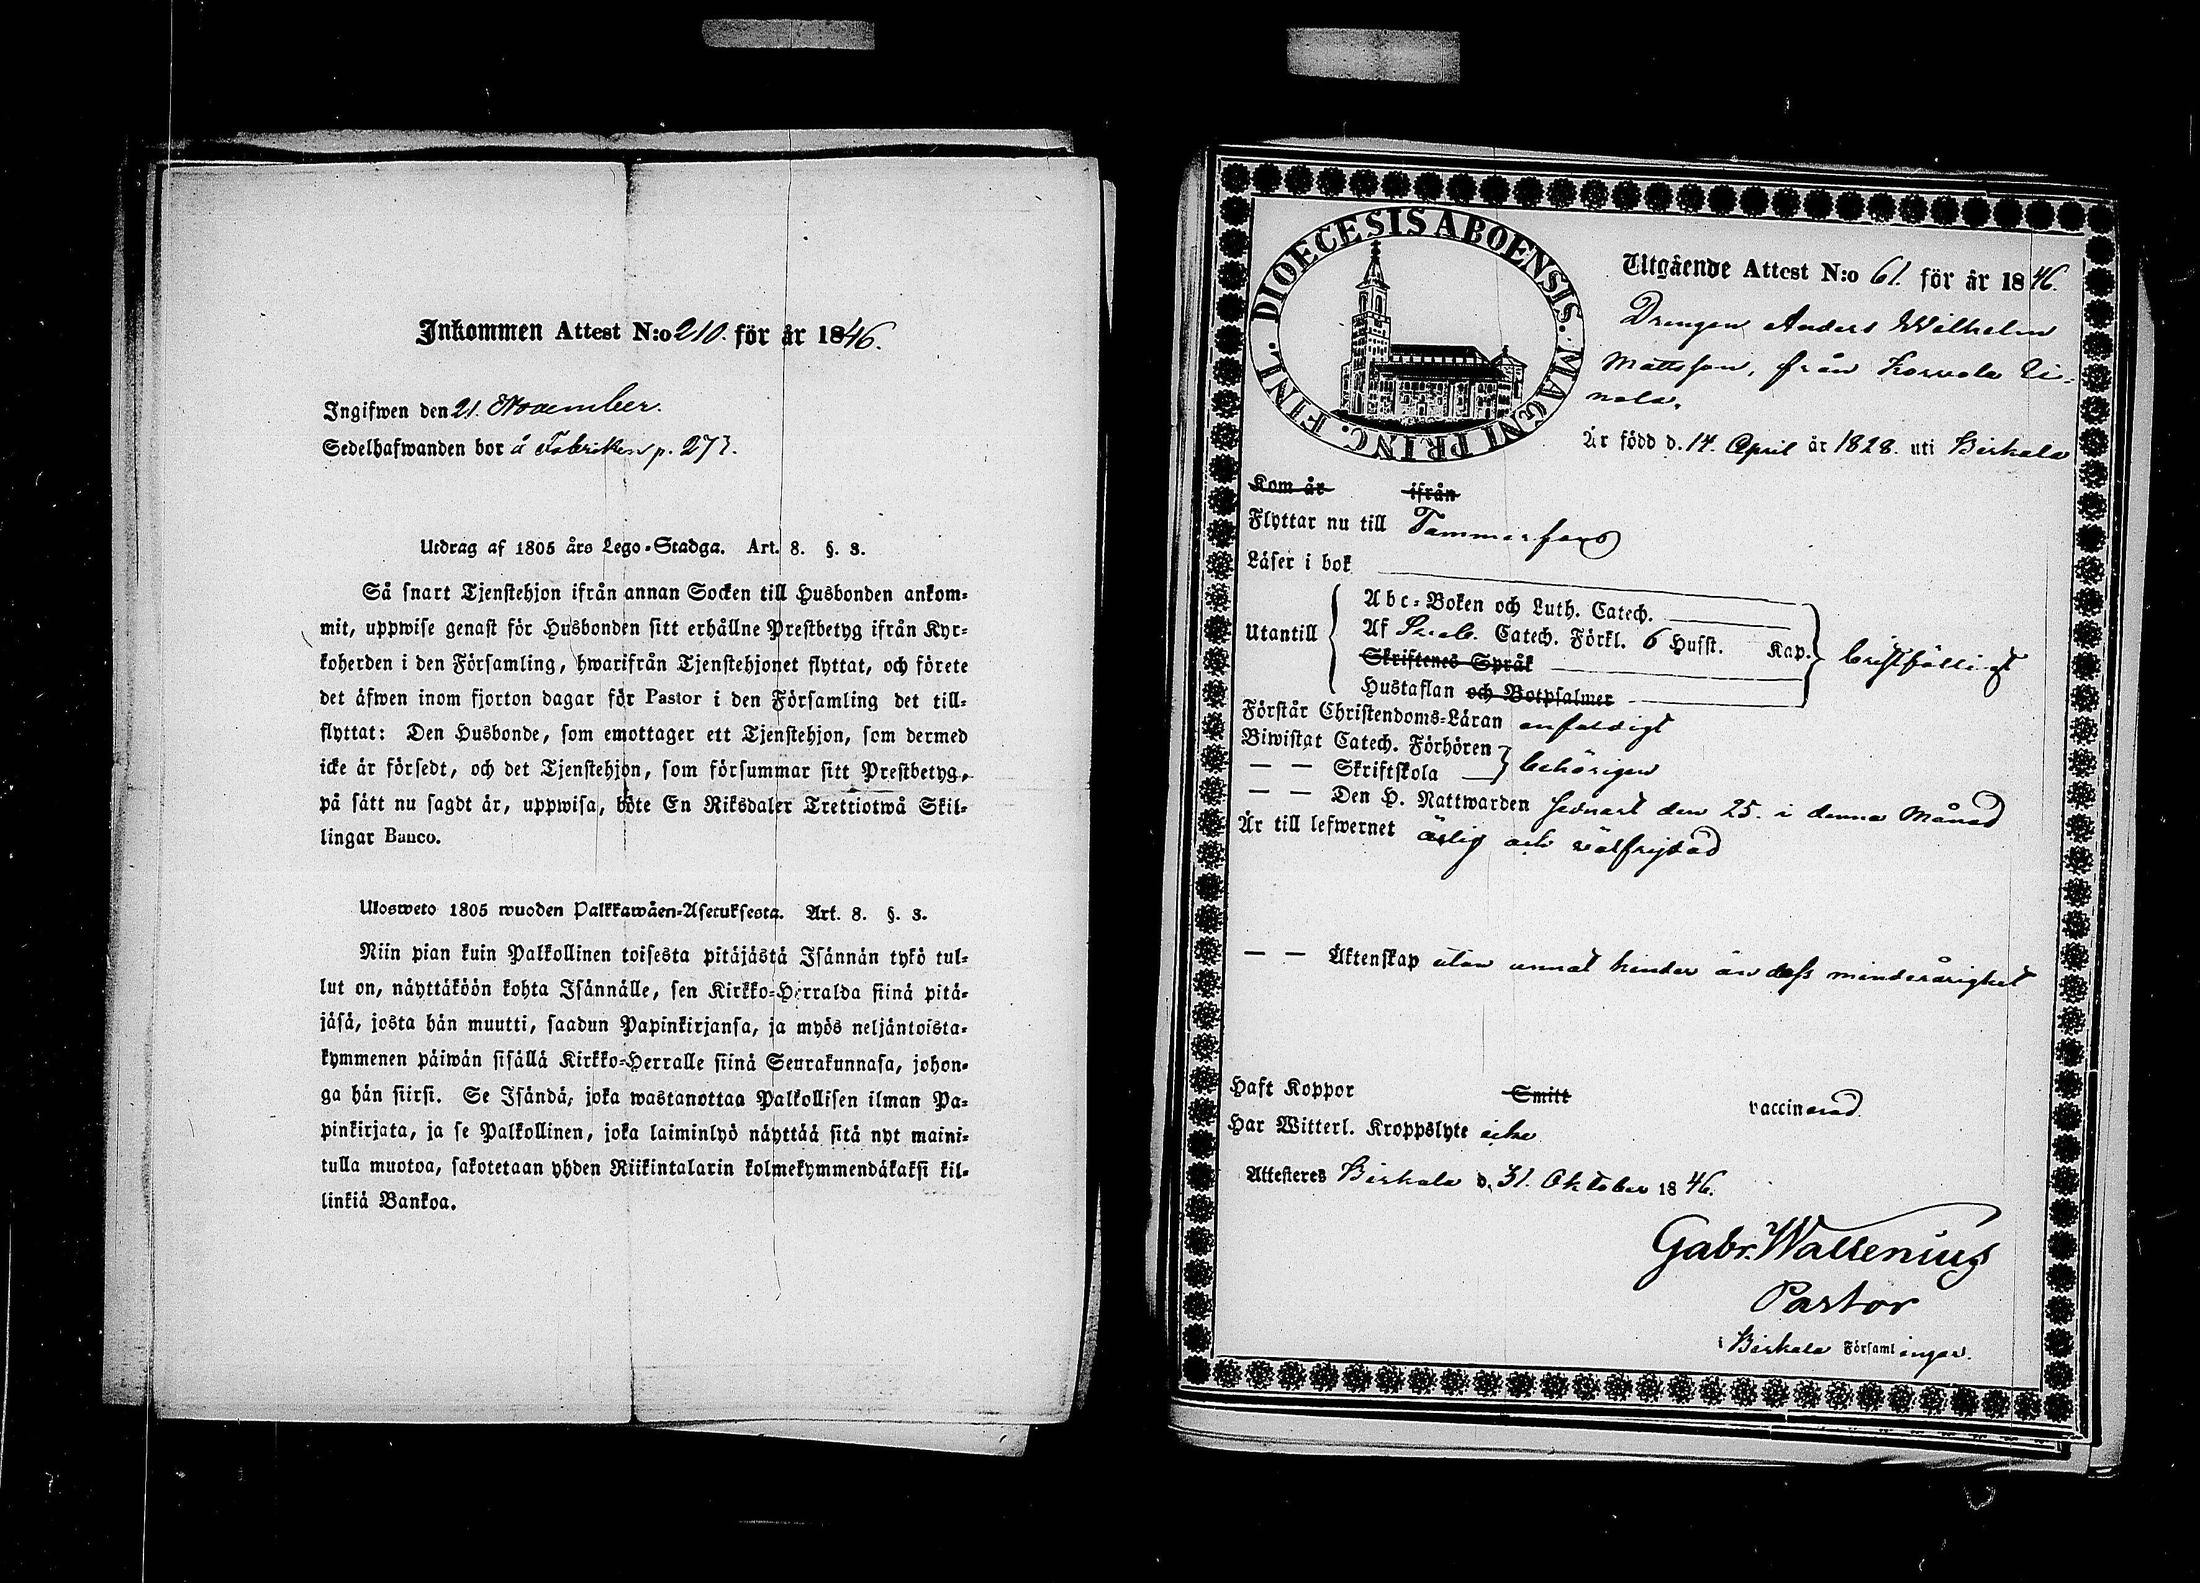 Inkommen Attest N:o 210. för år 1846.
Ingifwen den 21. November.
Sedelhafwanden bor å Fabriken p. 273.
Utdrag af 1805 års Lego-Stadga. Art. 8. §. 3.
Så snart Tjenstehjon ifrån annan Socken till Husbonden ankom-
mit, uppwise genast för Husbonden sitt erhållne Prestbetyg ifrån Kyr-
koherden i den Församling, hwarifrån Tjenstehjonet flyttat, och förete
det äfwen inom fjorton dagar för Pastor i den Församling det till-
flyttat: Den Husbonde, som emottager ett Tjenstehjon, som dermed
icke är försedt, och det Tjenstehjon, som försummar sitt Prestbetyg,
på sätt nu sagdt är, uppwisa, böte En Riksdaler Trettiotwå Skil-
lingar Banco.
Ulosweto 1805 wuoden Palkkawäen-Asetuksesta. Art. 8. §. 3.
Niin pian kuin Palkollinen toisesta pitäjästä Isännän tykö tul-
lut on, näyttäköön kohta Isännälle, sen Kirkko-Herralda siinä pitä-
jäsä, josta hän muutti, saadun Papinkirjansa, ja myös neljäntoista-
kymmenen päiwän sisällä Kirkko-Herralle siinä Seurakunnasa, johon-
ga hän siirsi. Se Isändä, joka wastanottaa Palkollisen ilman Pa-
pinkirjata, ja se Palkollinen, joka laiminlyö näyttää sitä nyt maini-
tulla muotoa, sakotetaan yhden Riikintalarin kolmekymmendäkaksi kil-
linkiä Bankoa.
DIOECESIS ABOENSIS. MAGNI PRINC. FINL.
Utgående Attest N:o 61. för år 1846.
Drengen Anders Wilhelm
Mattsson, från Korvola Ei-
nola.
Är född d. 14. April år 1828. uti Birkala
Kom år ifrån
Flyttar nu till Tammerfors
Läser i bok
Utantill
Abc-Boken och Luth. Catech.
Af Sveb. Catech. Förkl. 6 Hufst. Kap.
Skriftenes Språk
Hustaflan och Botpsalmer
bristfälligt
Förstår Christendoms-Läran enfaldigt
Biwistat Catech. Förhören
— — Skriftskola behörigen
— — Den H. Nattwarden sednast den 25. i denna Månad
Är till lefwernet ärlig och välfrejdad
— — Äktenskap utan annat hinder än dess minderårighet
Haft Koppor Smitt vaccinerad.
Har Witterl. Kroppslyte icke
Attesteres Birkala d. 31. Oktober 1846.
Gabr. Wallenius
Pastor
i Birkala Församlingar.